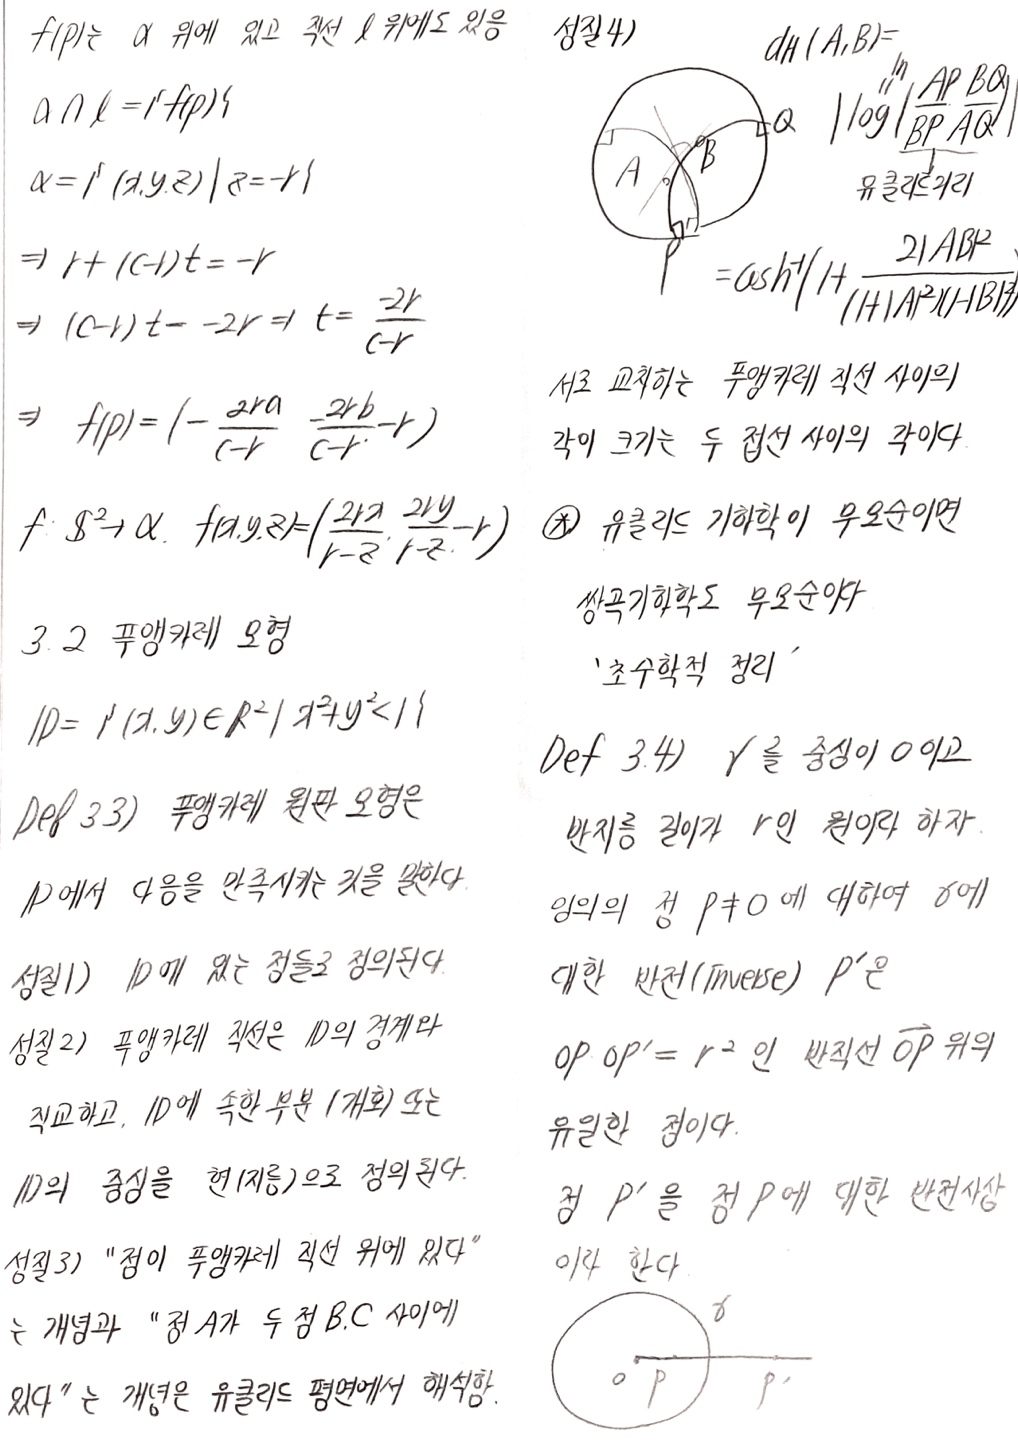 f(p)는 α 위에 있고 직선 l 위에도 있음
α∩l={f(p)}
α={(x,y,z)|z=-r}
⇒ r+(c-r)t=-r
⇒ (c-r)t=-2r ⇒ t= -2r/(c-r)
⇒ f(p)=(- 2ra/(c-r), -2rb/(c-r), -r)
f: S²→α. f(x,y,z)=(2rx/(r-z), 2ry/(r-z), -r)
3.2 푸앵카레 모형
ID={(x,y)∈R²| x²+y²<1}
Def 3.3) 푸앵카레 원판 모형은
ID에서 다음을 만족시키는 것을 말한다.
성질1) ID에 있는 점들로 정의된다.
성질2) 푸앵카레 직선은 ID의 경계와
직교하고, ID에 속한 부분 (개호) 또는
ID의 중심을 현(지름)으로 정의된다.
성질3) "점이 푸앵카레 직선 위에 있다"
는 개념과 "점 A가 두 점 B,C 사이에
있다"는 개념은 유클리드 평면에서 해석함.
성질4)
dH(A,B)=
ln
|log(AP/BP BQ/AQ)|
유클리드거리
A B Q
P
=cosh⁻¹(1+ 2|AB|²/((1-|A|²)(1-|B|²)))
서로 교차하는 푸앵카레 직선 사이의
각의 크기는 두 접선 사이의 각이다.
㊛ 유클리드 기하학이 무모순이면
쌍곡기하학도 무모순이다
'초수학적 정리'
Def 3.4) γ를 중심이 O이고
반지름 길이가 r인 원이라 하자.
임의의 점 P≠O에 대하여 γ에
대한 반전(Inverse) P'은
OP·OP'=r²인 반직선 OP 위의
유일한 점이다.
점 P'을 점 P에 대한 반전사상
이라 한다.
γ
O P P'